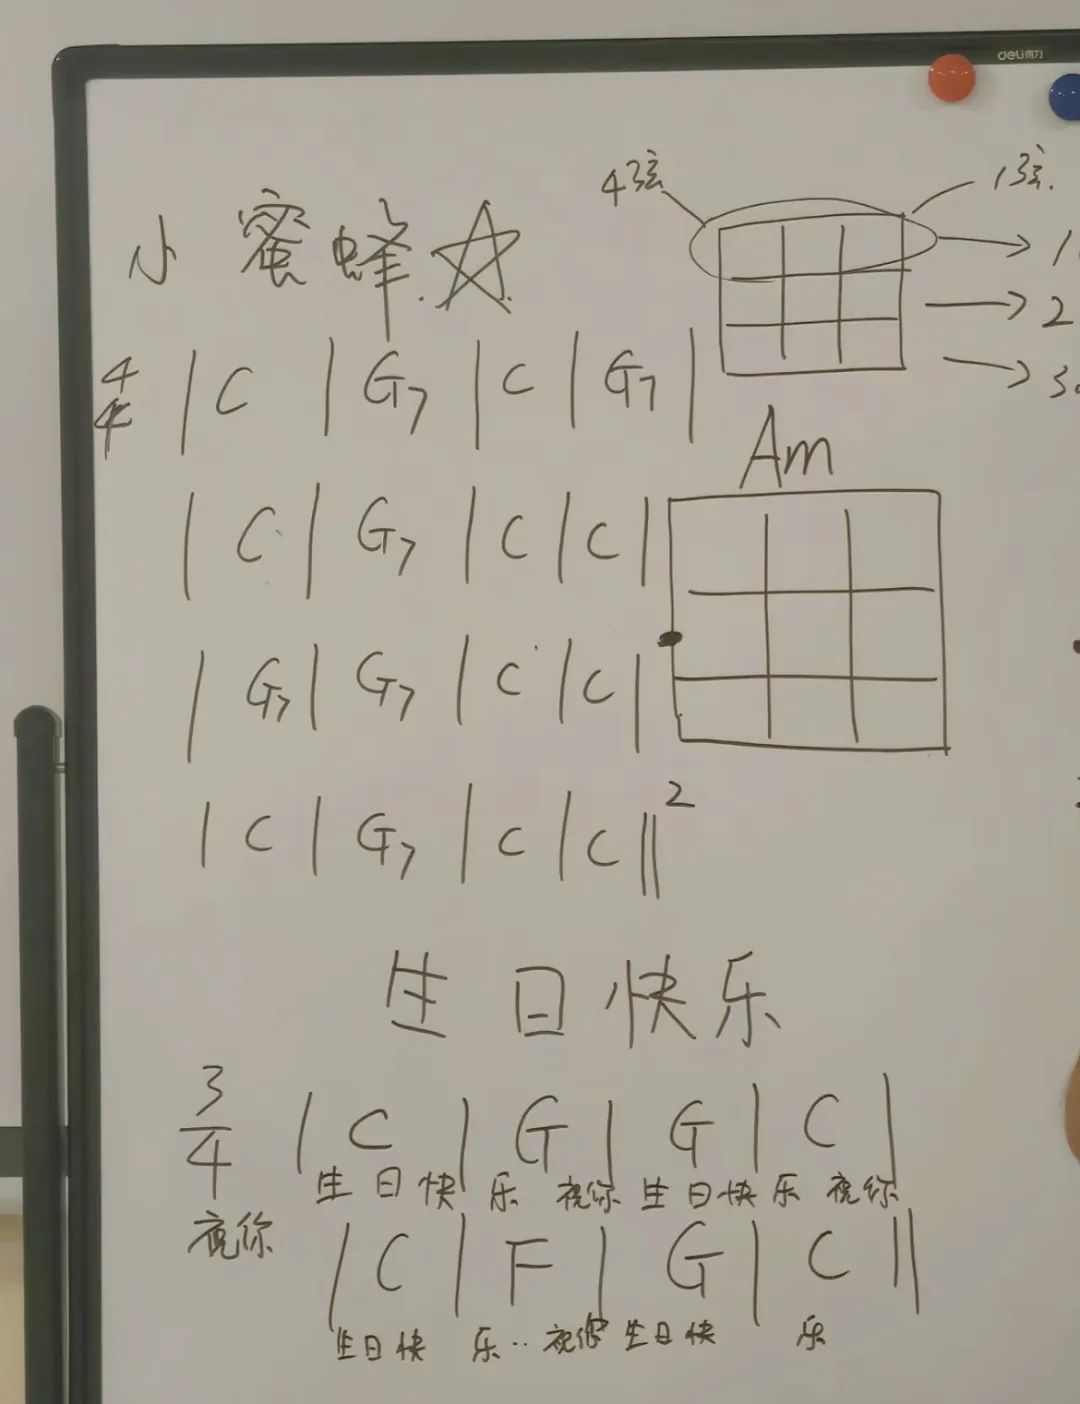 deli得力
4弦 1弦.
小蜜蜂.
1
2
3.
4/4 | C | G7 | C | G7 |
Am
| C | G7 | C | C |
| G7 | G7 | C | C |
| C | G7 | C | C ‖ 2
生日快乐
3/4 | C | G | G | C |
生日快 乐 祝你 生日快 乐 祝你
祝你
| C | F | G | C ‖
生日快 乐·· 祝你 生日快 乐